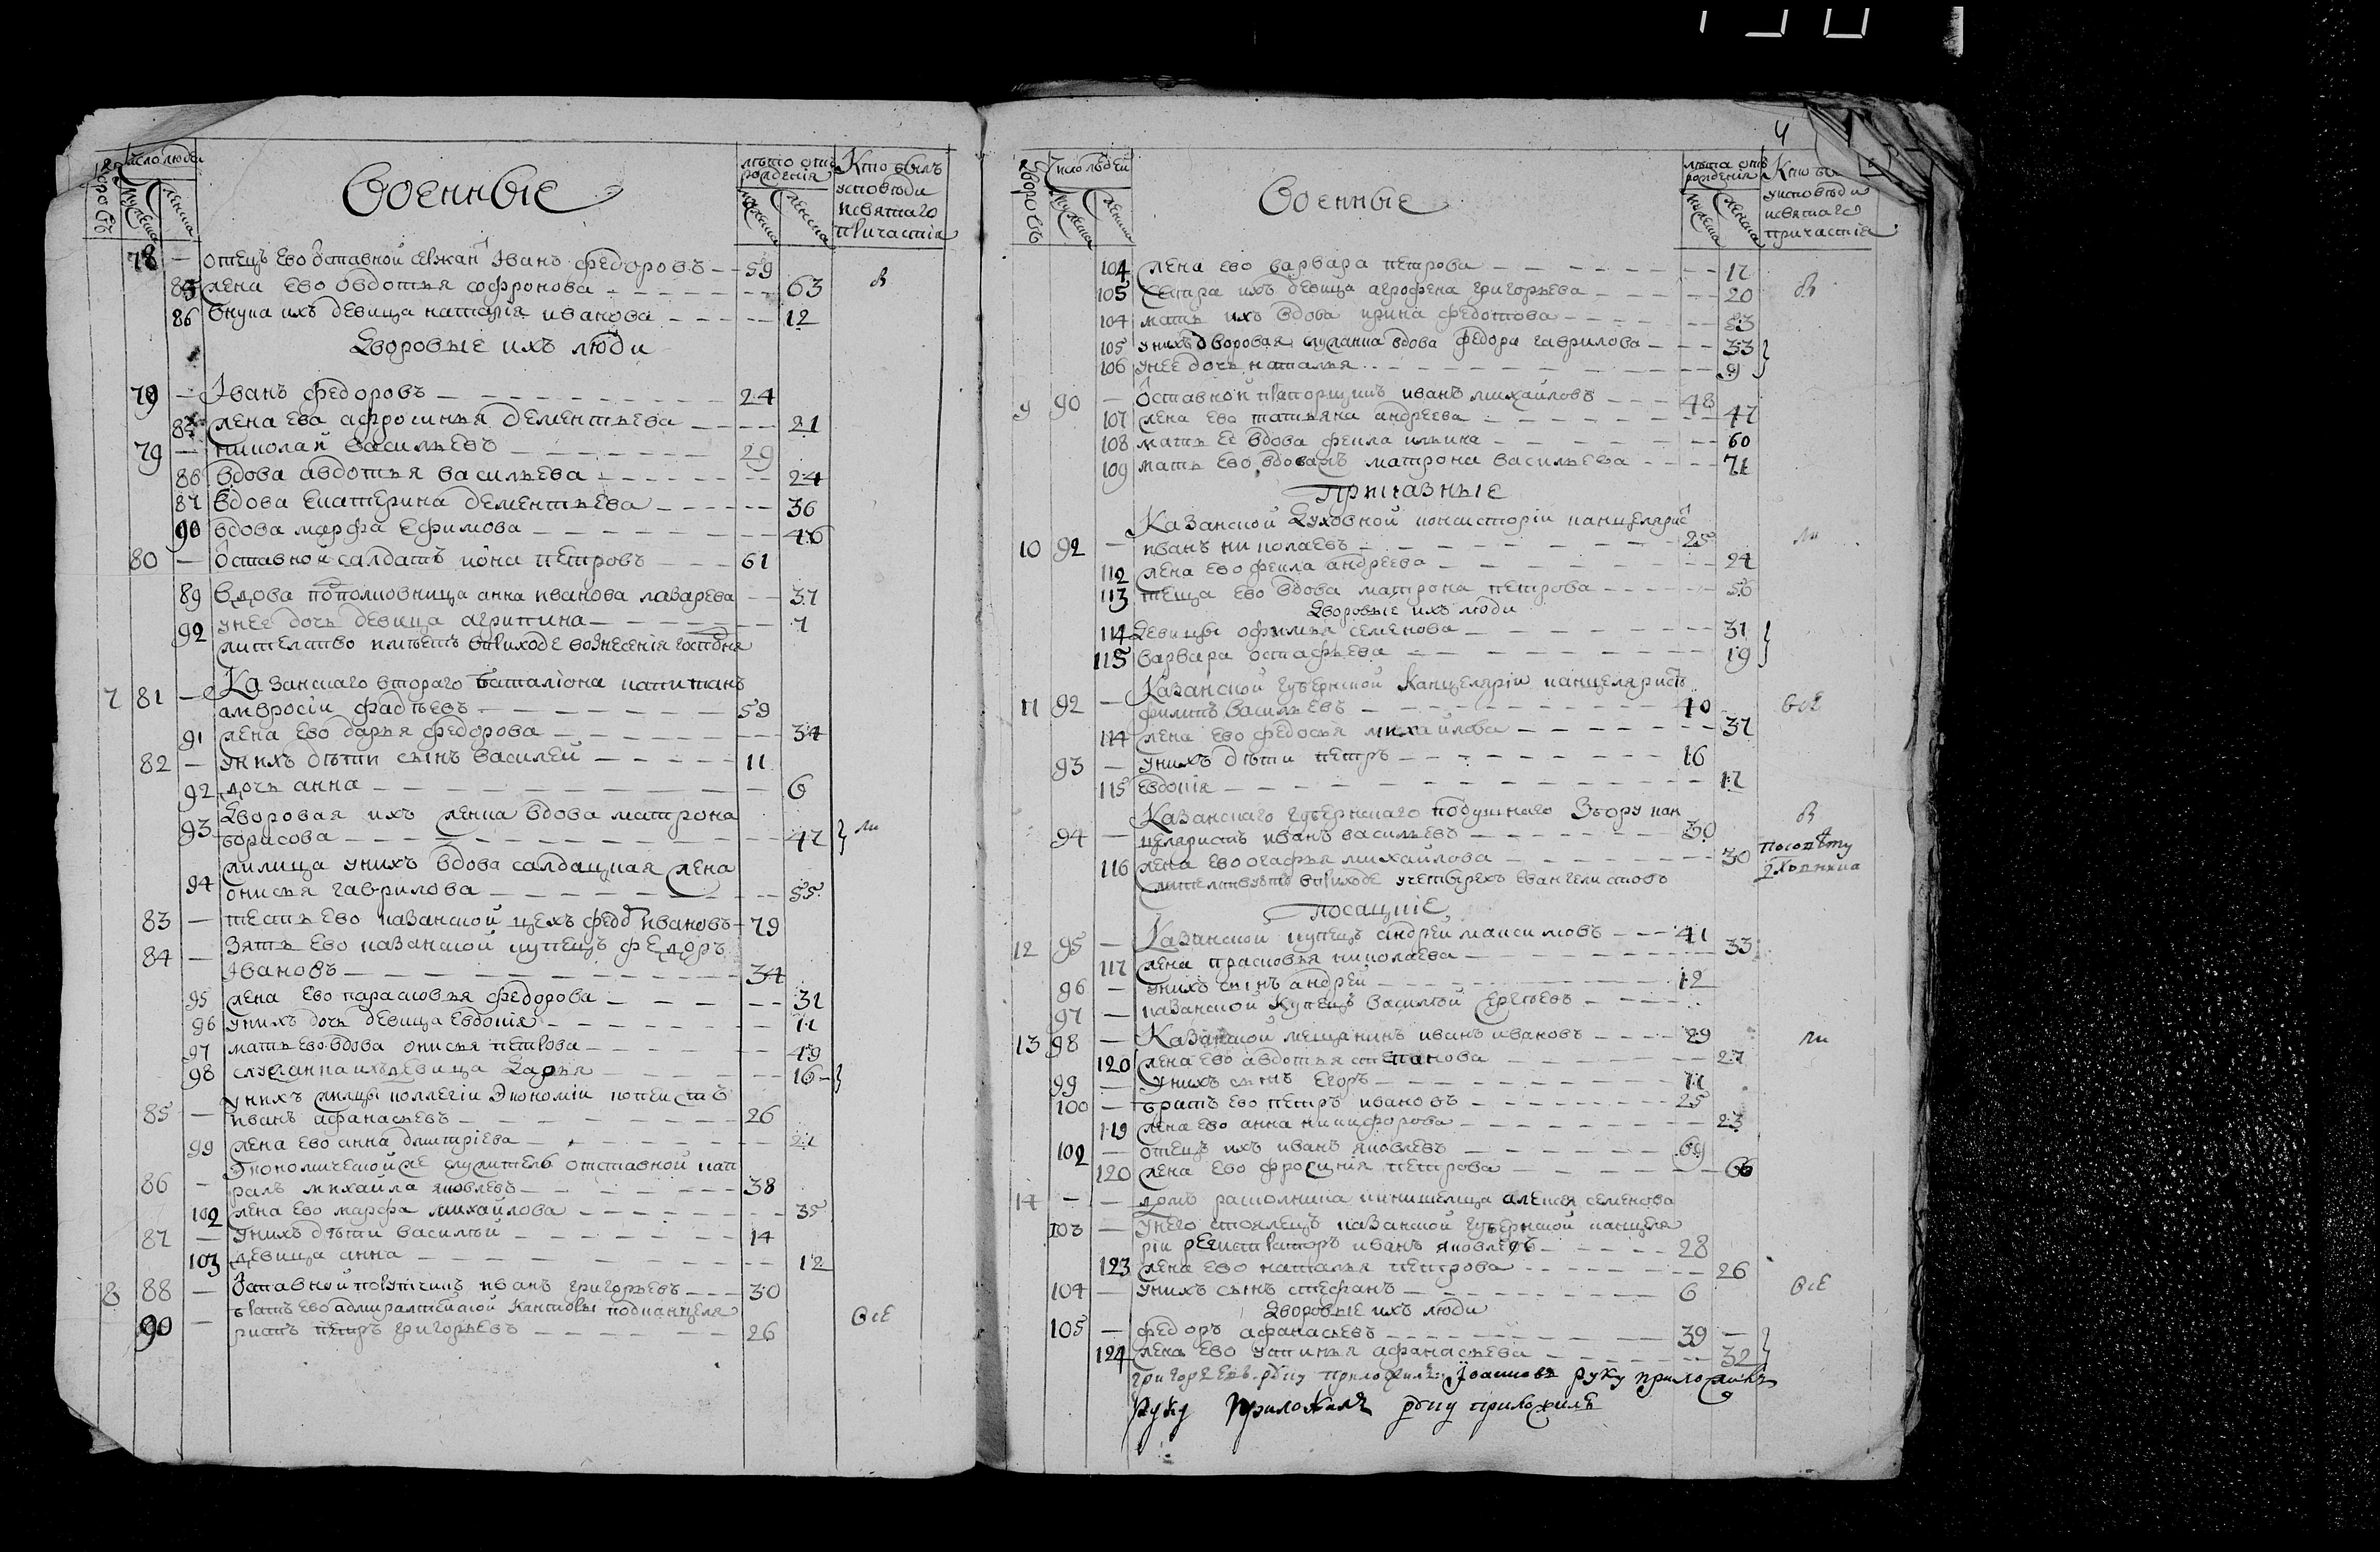 число люди
дворовъ
мужеска
женска
Военные
лѣто отъ рождения
мужеска
женска
Кто былъ
у исповѣди
и святаго
причастия
78 — отецъ ево отставной сержант Иванъ Федоровъ — 59
85 жена ево овдотья софронова — 63
86 внука ихъ девица наталия иванова — 12
Дворовые ихъ люди
79 — Иванъ федоровъ — 24
жена ева афросинья дементьева — 21
79 — николай васильевъ — 29
86 вдова авдотья васильева — 24
87 вдова екатерина дементьева — 36
90 вдова марфа ефимова — 46
80 — Оставной салдатъ иона петровъ — 61
89 вдова полполковница анна иванова лазарева — 37
92 у нее дочь девица агрипина — 7
жителство имѣетъ въ приходе вознесения господня
Казанскаго втораго баталиона капитанъ
7 81 — амвросiи фадѣевъ — 59
91 жена ево дарья федорова — 34
82 — у нихъ дѣти сынъ василей — 11
92 дочь анна — 6
Дворовая ихъ женка вдова матрона
93 борисова — 47
жилица у нихъ вдова салдацкая жена
94 онисья гаврилова — 55
83 — тесть ево казанской цехъ федоръ ивановъ — 79
84 — Зять ево казанской купецъ федоръ
Ивановъ — 34
95 жена ево парасковья федорова — 31
96 у нихъ дочь девица евдокiя — 11
97 мать ево вдова онисья петрова — 49
98 служанка ихъ девица Дарья — 16
у нихъ жилцы коллегiи Экономiи копеистъ
85 — иванъ афанасьевъ — 26
99 жена ево анна дмитрiева — 21
Экономической же служитель отставной кап
86 — ралъ михайла яковлевъ — 38
102 жена ево марфа михайлова — 35
87 — у нихъ дѣти василей — 14
103 девица анна — 12
8 88 — Отставной порутчикъ иванъ григорьевъ — 30
братъ ево адмиралтейской канторы подканцеля
90 — ристъ петръ григорьевъ — 26
все
4
дворовъ
Число людей
мужеска
женска
Военные
лѣта отъ рождения
мужеска
женска
у исповѣди
и святаго
причастия
104 жена ево варвара петрова — 17
105 сестра ихъ девица агрофена григорьева — 20
104 мать ихъ вдова ирина федотова — 53
105 у нихъ дворовая служанка вдова федора гаврилова — 33
106 у нее дочь наталья — 9
9 90 — Оставной прапорщикъ иванъ михайловъ — 48
107 жена ево татьяна андреева — 47
108 мать ее вдова фекла ильина — 60
109 мать ево вдова матрона васильева — 71
Приказные
Казанской Духовной консисторiи канцелярист
10 92 — иванъ николаевъ — 25
112 жена ево фекла андреева — 24
113 теща ево вдова матрона петрова — 56
Дворовые ихъ люди
114 Девицы офимья семенова — 31
115 варвара остафьева — 19
Казанской губернской Канцелярiи канцеляристъ
11 92 — филипъ васильевъ — 40 все
114 жена ево федосья михайлова — 37
93 — у нихъ дѣти петръ — 16
115 евдокiя — 12
Казанскаго губернскаго подушнаго Збору кан
94 — целяристъ иванъ васильевъ — 30
116 жена ево огафья михайлова — 30
жителствуетъ въ приходе у четырехъ евангелистовъ
Посацкiе
12 95 — Казанской купецъ андрей максимовъ — 41
117 жена прасковья николаева — 33
96 — у нихъ сынъ андрей — 12
97 — казанской Купецъ василей сергѣевъ —
13 98 — Казанской мещанинъ иванъ ивановъ — 29
120 жена ево авдотья степанова — 27
99 — у нихъ сынъ егоръ — 11
100 — братъ ево петръ ивановъ — 25
119 жена ево анна никифорова — 23
102 — отецъ ихъ иванъ яковлевъ — 69
120 жена ево фросиния петрова — 66
14 — — домъ алексея семенова
103 — у него стоялецъ казанской губернской канцеля
рiи регистраторъ иванъ яковлевъ — 28
123 жена ево наталья петрова — 26
104 — у нихъ сынъ стефанъ — 6 все
Дворовые ихъ люди
105 — федоръ афанасьевъ — 39
124 жена ево устинья афанасьева — 32
григорьевъ руку приложилъ Иоанновъ руку приложилъ
руку приложилъ руку приложилъ